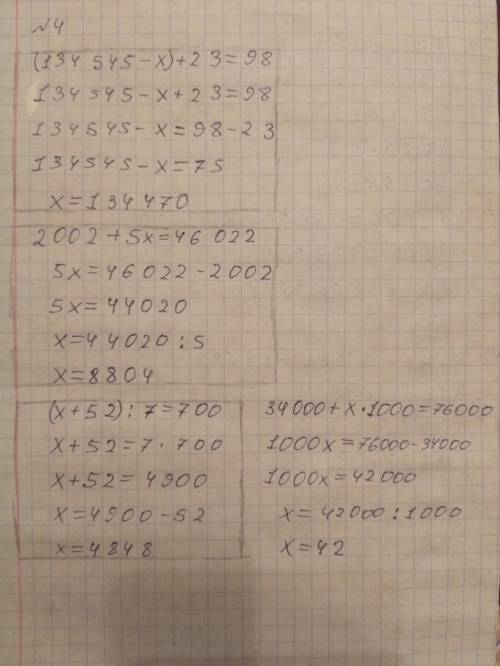 №4
(134 545-x)+23=98
134 545-x+23=98
134545-x=98-23
134545-x=75
x=134470
2002+5x=46 022
5x=46022-2002
5x=44020
x=44020:5
x=8804
(x+52):7=700
x+52=7·700
x+52=4900
x=4900-52
x=4848
34000+x·1000=76000
1000x=76000-34000
1000x=42000
x=42000:1000
x=42